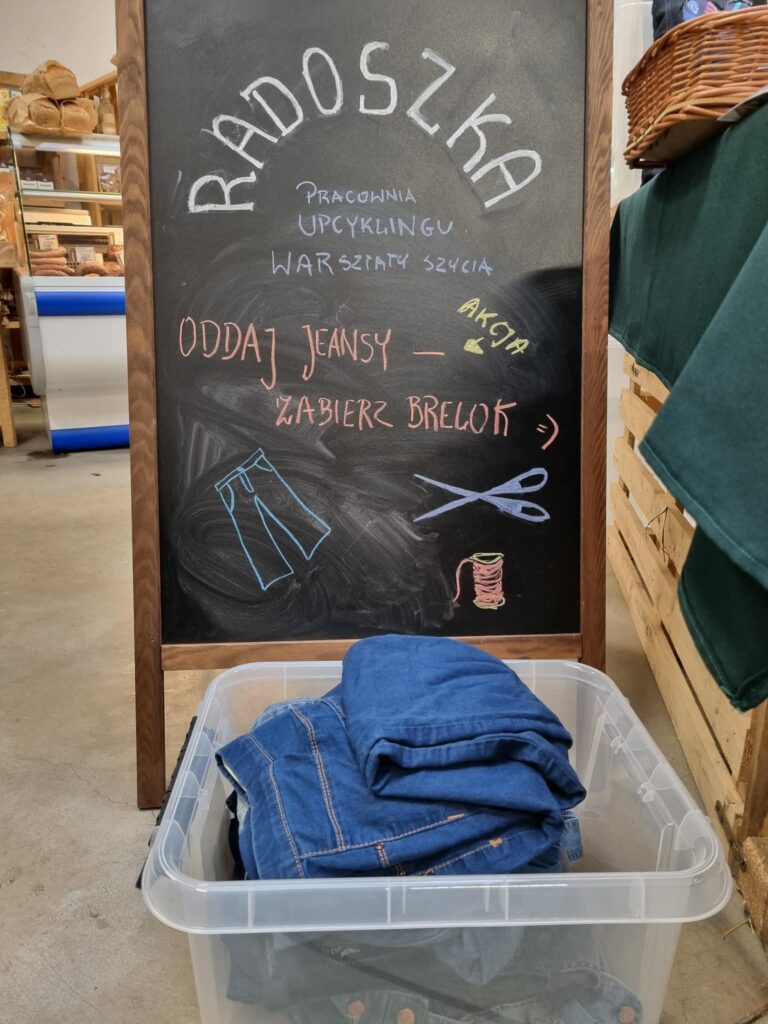 RADOSZKA
PRACOWNIA
UPCYKLINGU
WARSZTATY SZYCIA
AKCJA
ODDAJ JEANSY —
ZABIERZ BRELOK =)